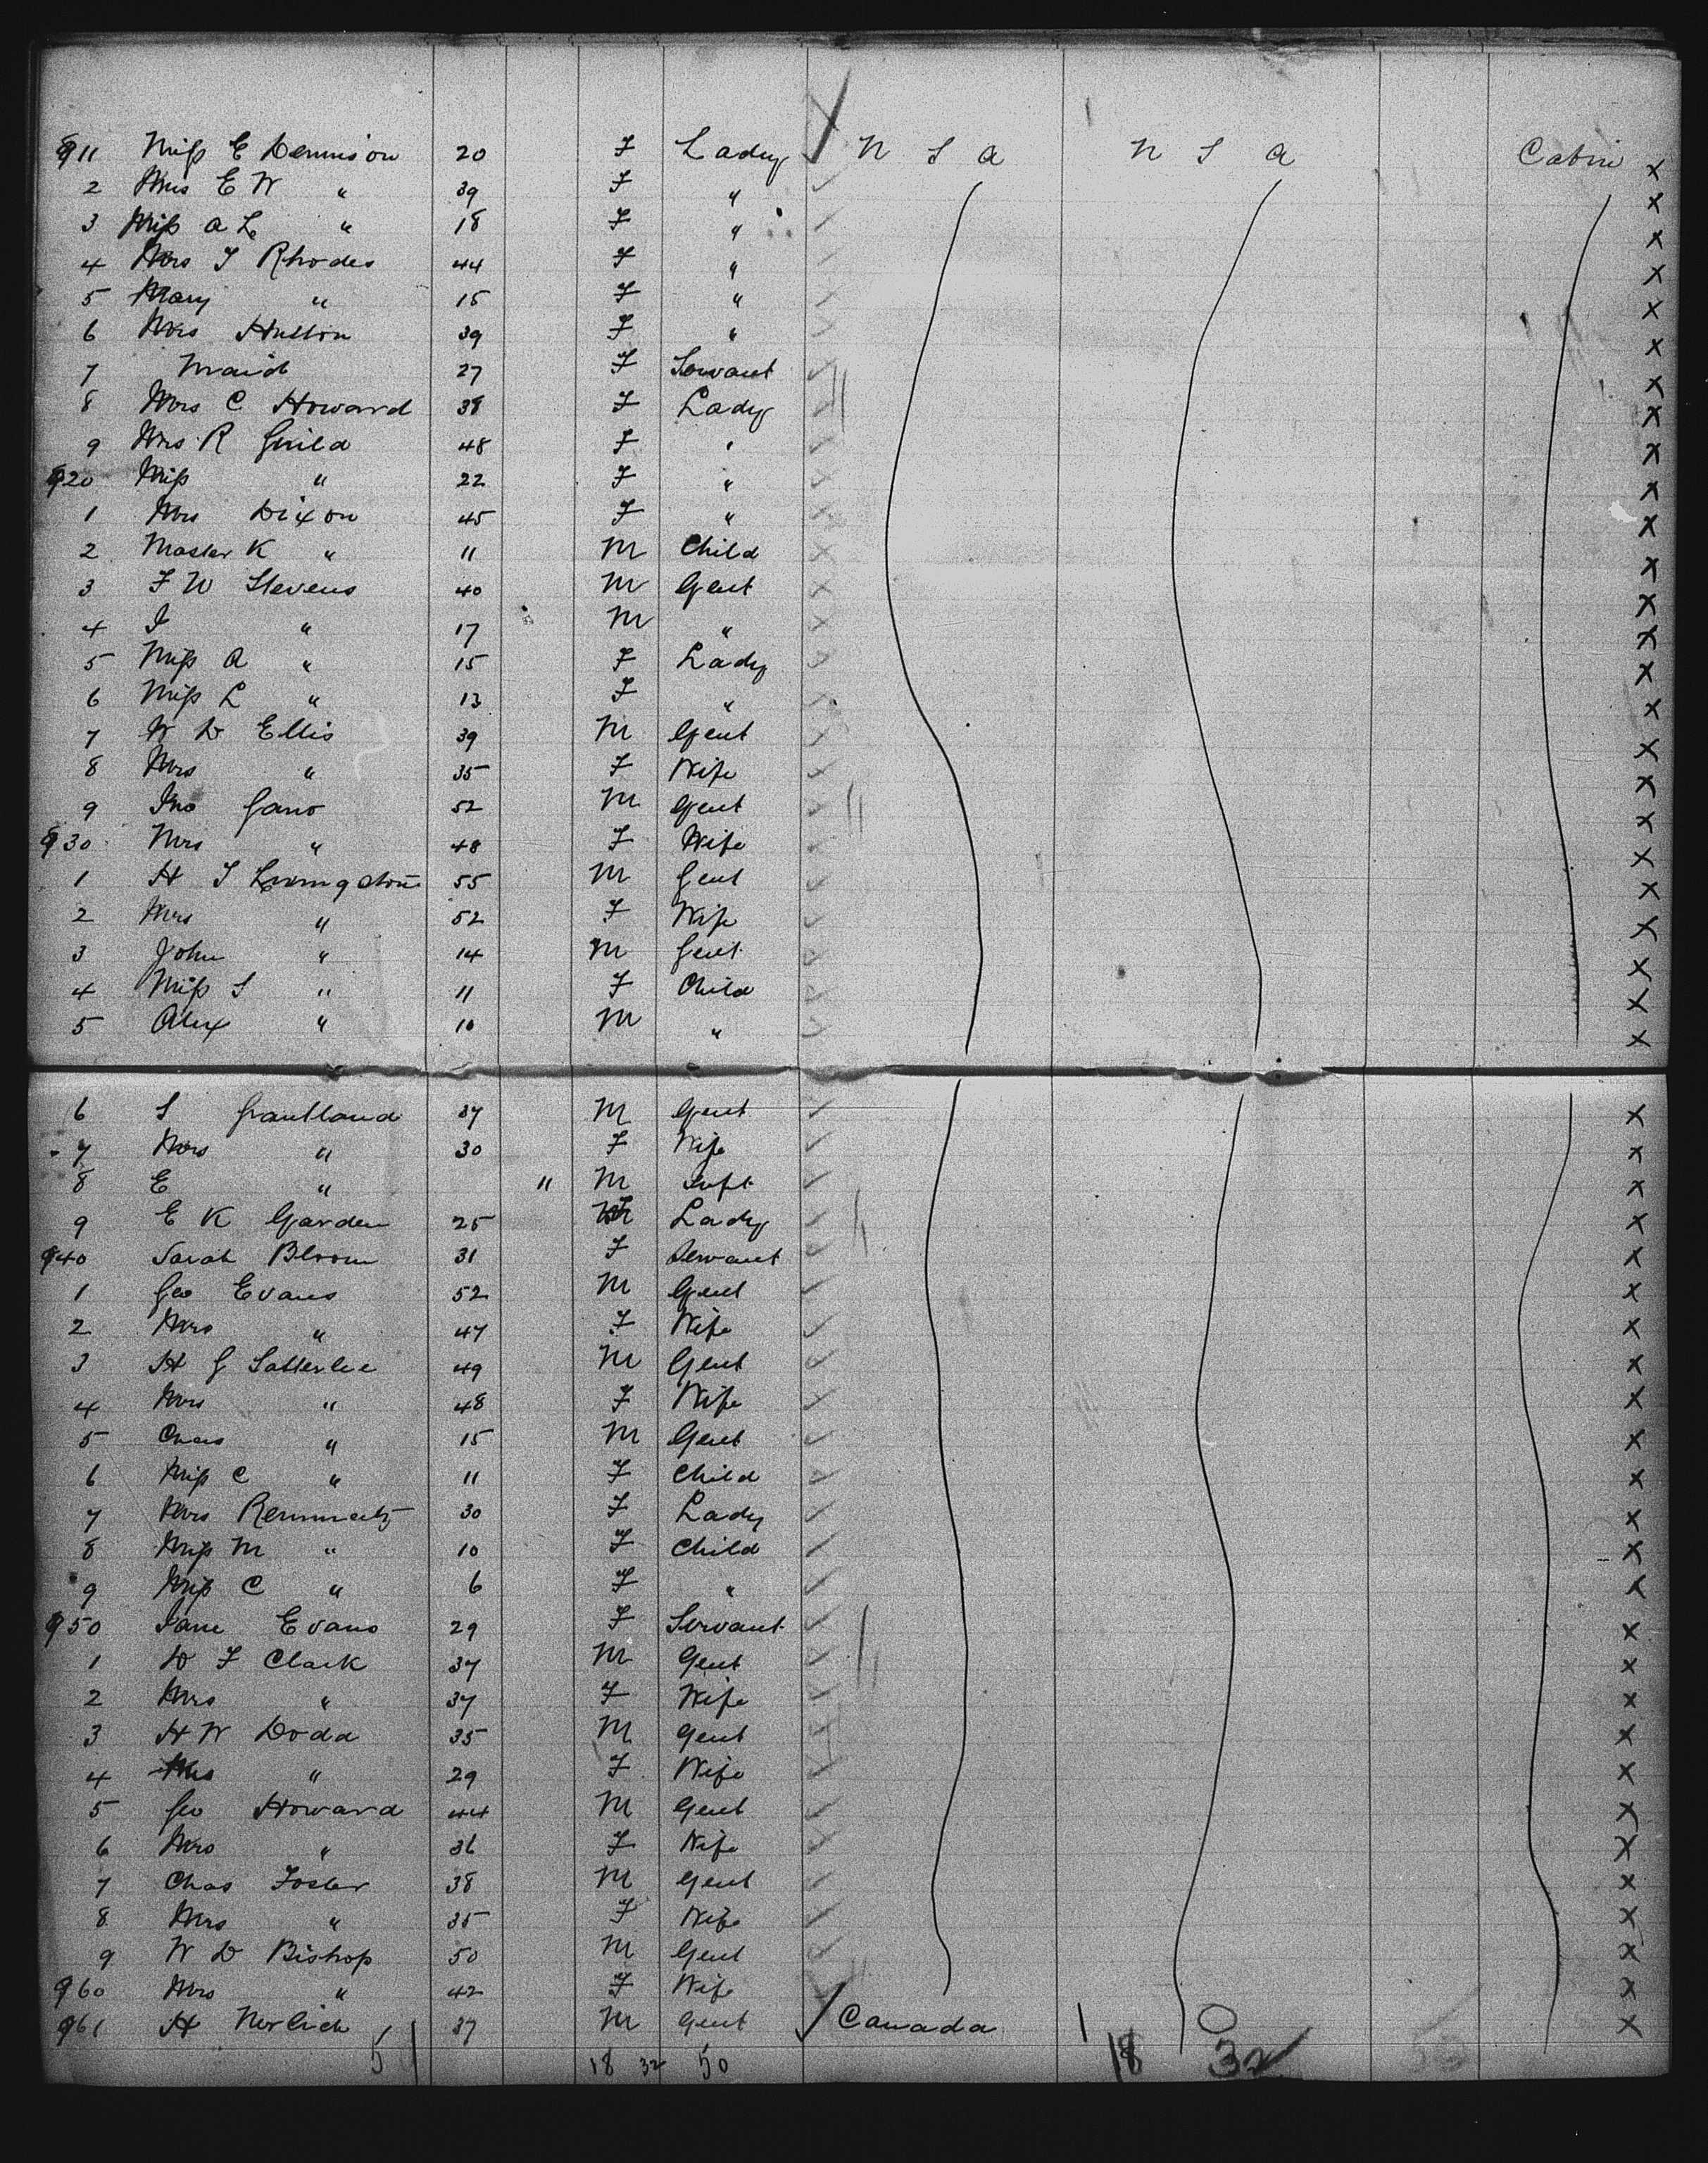 911 Miss E Dennison 20 F Lady U S A U S A Cabin X
2 Mrs E W " 39 F " X
3 Miss A L " 18 F " X
4 Mrs J Rhodes 44 F " X
5 Mary " 15 F " X
6 Mrs Hutton 39 F " X
7 Maid 27 F Servant X
8 Mrs C Howard 38 F Lady X
9 Mrs R Guild 48 F " X
920 Miss " 22 F " X
1 Mrs Dixon 45 F " X
2 Master K " 11 M Child X
3 F W Stevens 40 M Gent X
4 J " 17 M " X
5 Miss A " 15 F Lady X
6 Miss L " 13 F " X
7 W D Ellis 39 M Gent X
8 Mrs " 35 F Wife X
9 Jno Gano 52 M Gent X
930 Mrs " 48 F Wife X
1 H J Livingstone 55 M Gent X
2 Mrs " 52 F Wife X
3 John " 14 M Gent X
4 Miss S " 11 F Child X
5 Alex " 10 M " X
6 S Grantland 37 M Gent X
7 Mrs " 30 F Wife X
8 E " 11 M Inft X
9 E K Garden 25 F Lady X
940 Sarah Bloom 31 F Servant X
1 Geo Evans 52 M Gent X
2 Mrs " 47 F Wife X
3 H G Satterlee 49 M Gent X
4 Mrs " 48 F Wife X
5 Chas " 15 M Gent X
6 Miss C " 11 F Child X
7 Mrs 30 F Lady X
8 Miss M " 10 F Child X
9 Miss C " 6 F " X
950 Jane Evans 29 F Servant X
1 D F Clark 37 M Gent X
2 Mrs " 37 F Wife X
3 H W Dodd 35 M Gent X
4 Mrs " 29 F Wife X
5 Geo Howard 44 M Gent X
6 Mrs " 36 F Wife X
7 Chas Foster 38 M Gent X
8 Mrs " 35 F Wife X
9 W D Bishop 50 M Gent X
960 Mrs " 42 F Wife X
961 H Nerlich 37 M Gent Canada 1 0 X
51 18 32 50 18 32